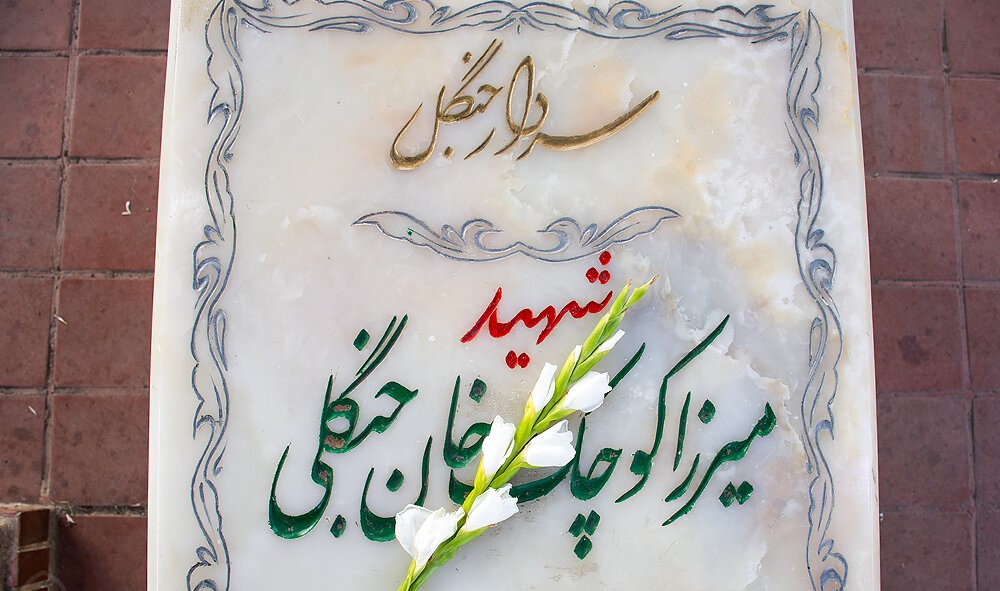 سردار جنگل
شهید
میرزا کوچک خان جنگلی